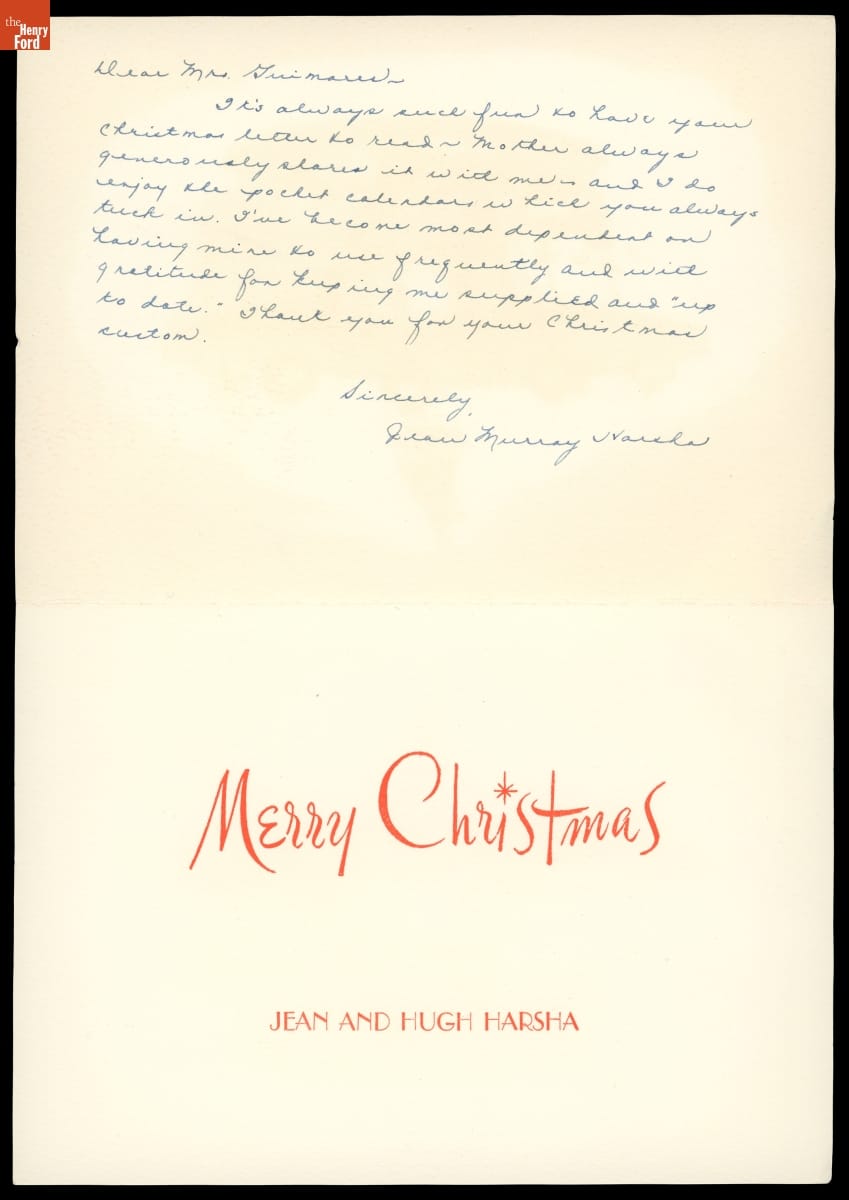 the
Henry
Ford
Dear Mrs. Guimares ~
It's always such fun to have your
Christmas letter to read ~ Mother always
generously shares it with me - and I do
enjoy the pocket calendars which you always
tuck in. I've become most dependent on
having mine to use frequently and with
gratitude for keeping me supplied and "up
to date." Thank you for your Christmas
custom.
Sincerely,
Jean Murray Harsha
Merry Christmas
JEAN AND HUGH HARSHA